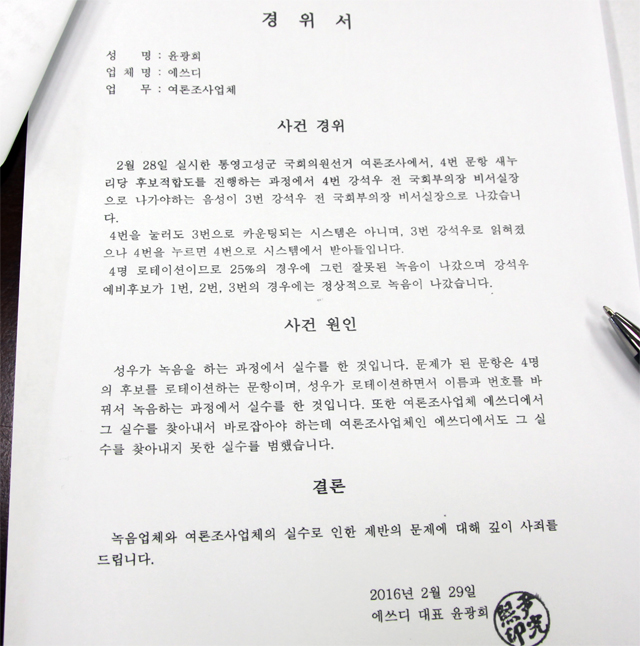 경 위 서
성 명 : 윤광희
업 체 명 : 에쓰디
업 무 : 여론조사업체
사건 경위
2월 28일 실시한 통영고성군 국회의원선거 여론조사에서, 4번 문항 새누
리당 후보적합도를 진행하는 과정에서 4번 강석우 전 국회부의장 비서실장
으로 나가야하는 음성이 3번 강석우 전 국회부의장 비서실장으로 나갔습니
다.
4번을 눌러도 3번으로 카운팅되는 시스템은 아니며, 3번 강석우로 읽혀졌
으나 4번을 누르면 4번으로 시스템에서 받아들입니다.
4명 로테이션이므로 25%의 경우에 그런 잘못된 녹음이 나갔으며 강석우
예비후보가 1번, 2번, 3번의 경우에는 정상적으로 녹음이 나갔습니다.
사건 원인
성우가 녹음을 하는 과정에서 실수를 한 것입니다. 문제가 된 문항은 4명
의 후보를 로테이션하는 문항이며, 성우가 로테이션하면서 이름과 번호를 바
꿔서 녹음하는 과정에서 실수를 한 것입니다. 또한 여론조사업체 에쓰디에서
그 실수를 찾아내서 바로잡아야 하는데 여론조사업체인 에쓰디에서도 그 실
수를 찾아내지 못한 실수를 범했습니다.
결론
녹음업체와 여론조사업체의 실수로 인한 제반의 문제에 대해 깊이 사죄를
드립니다.
2016년 2월 29일
에쓰디 대표 윤광희